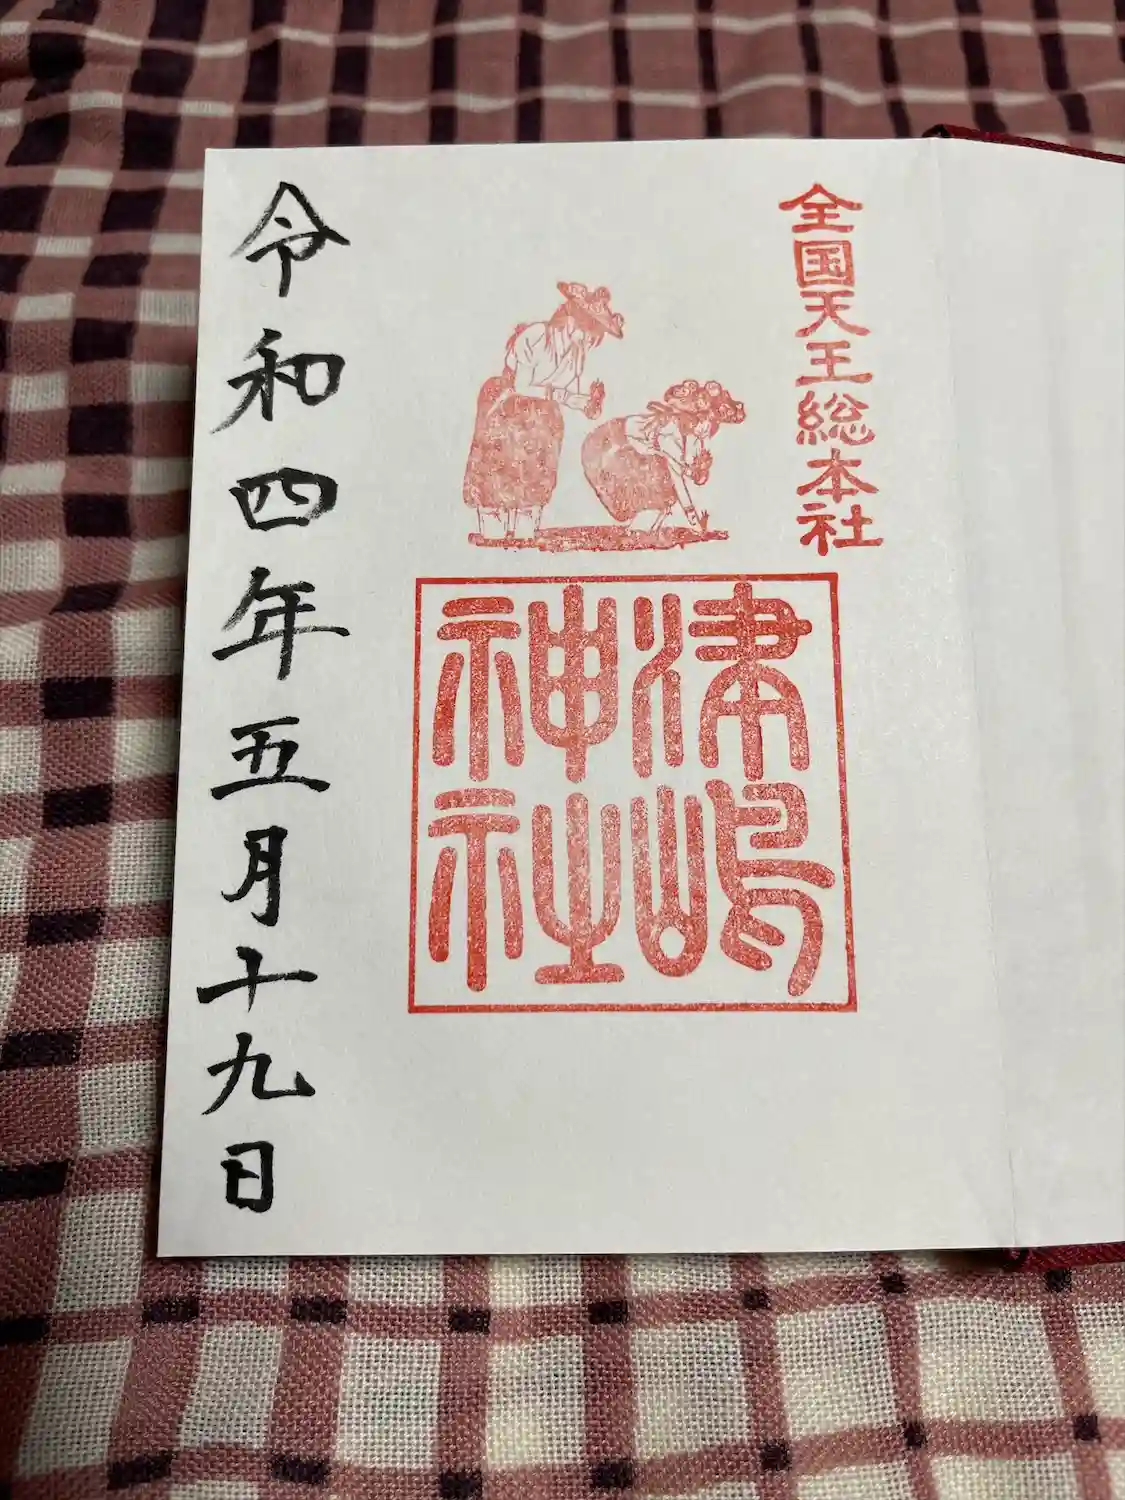 全国天王総本社
津嶋
神社
令和四年五月十九日